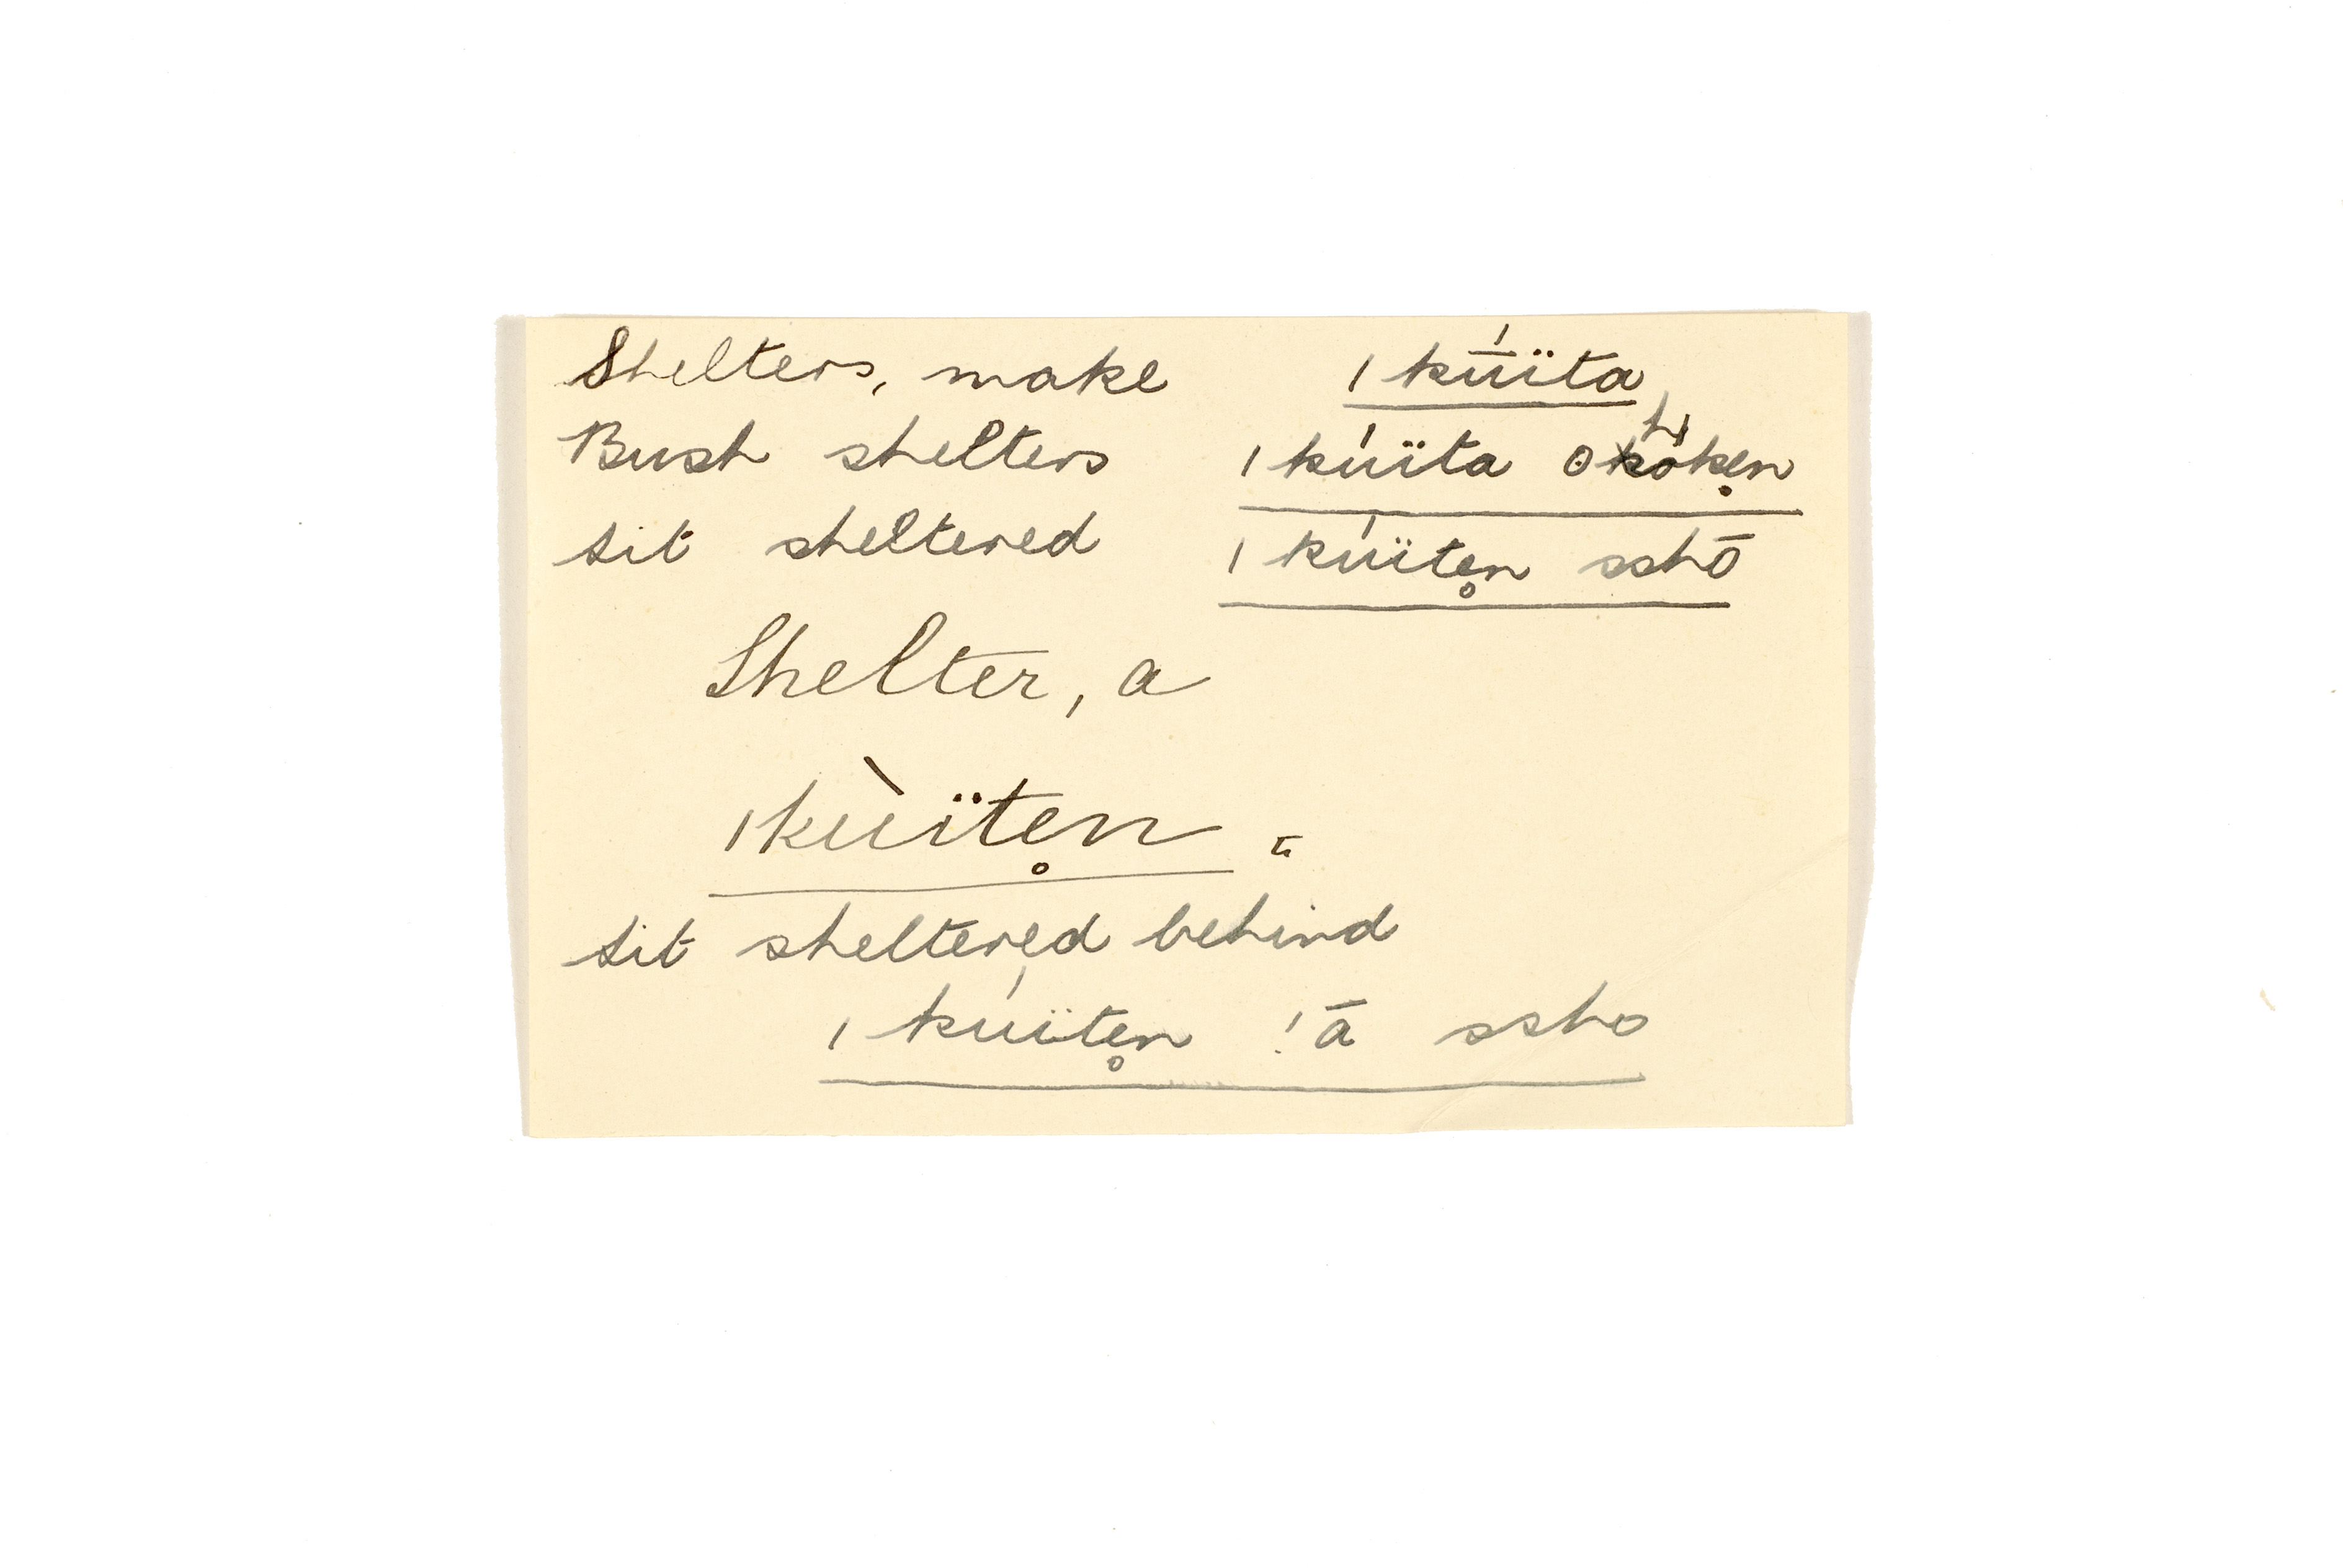 Shelters, make ǀkū́ïta
Bush shelters ǀkúïta ohóken̥
sit sheltered ǀkúïte̥n sshō
Shelter, a
ǀkùïte̥n.
sit sheltered behind
ǀkúïte̥n !ā ssho